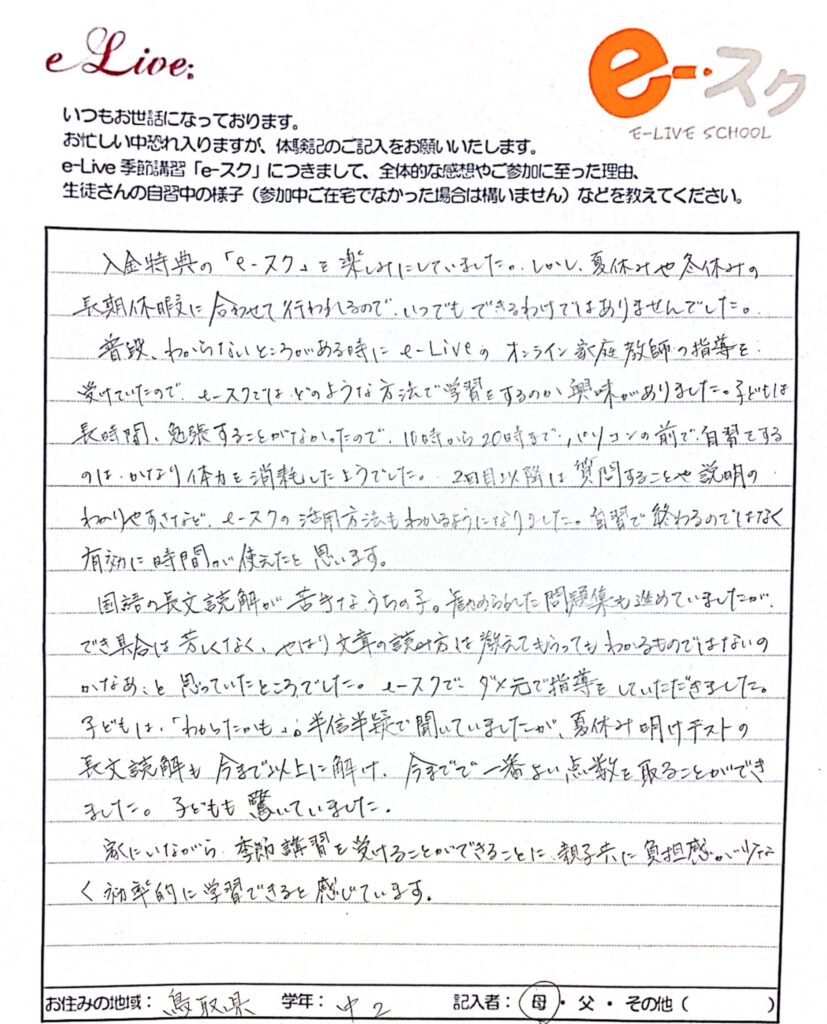 e Live:
e-スク
E-LIVE SCHOOL
いつもお世話になっております。
お忙しい中恐れ入りますが、体験記のご記入をお願いいたします。
e-Live 季節講習「e-スク」につきまして、全体的な感想やご参加に至った理由、
生徒さんの自習中の様子（参加中ご在宅でなかった場合は構いません）などを教えてください。
入金特典の「e-スク」を楽しみにしていました。しかし、夏休みや冬休みの
長期休暇に合わせて行われるので、いつでもできるわけではありませんでした。
普段、わからないところがある時にe-Liveのオンライン家庭教師の指導を
受けていたので、e-スクではどのような方法で学習をするのか興味がありました。子どもは
長時間、勉強することがなかったので、10時から20時まで、パソコンの前で自習をする
のは、かなり体力を消耗したようでした。2回目以降は質問することや説明の
わかりやすさなど、e-スクの活用方法もわかるようになりました。自習で終わるのではなく
有効に時間が使えたと思います。
国語の長文読解が苦手なうちの子。勧められた問題集も進めていましたが、
でき具合は芳しくなく、やはり文章の読み方は教えてもらってもわかるものではないの
かなぁ、と思っていたところでした。e-スクで、ダメ元で指導をしていただきました。
子どもは、「わかったかも」。半信半疑で聞いていましたが、夏休み明けテストの
長文読解も今まで以上に解け、今までで一番よい点数を取ることができ
ました。子どもも驚いていました。
家にいながら、季節講習を受けることができることに、親子共に負担感が少な
く効率的に学習できると感じています。
お住みの地域：鳥取県 学年：中2 記入者：母・父・その他（ ）